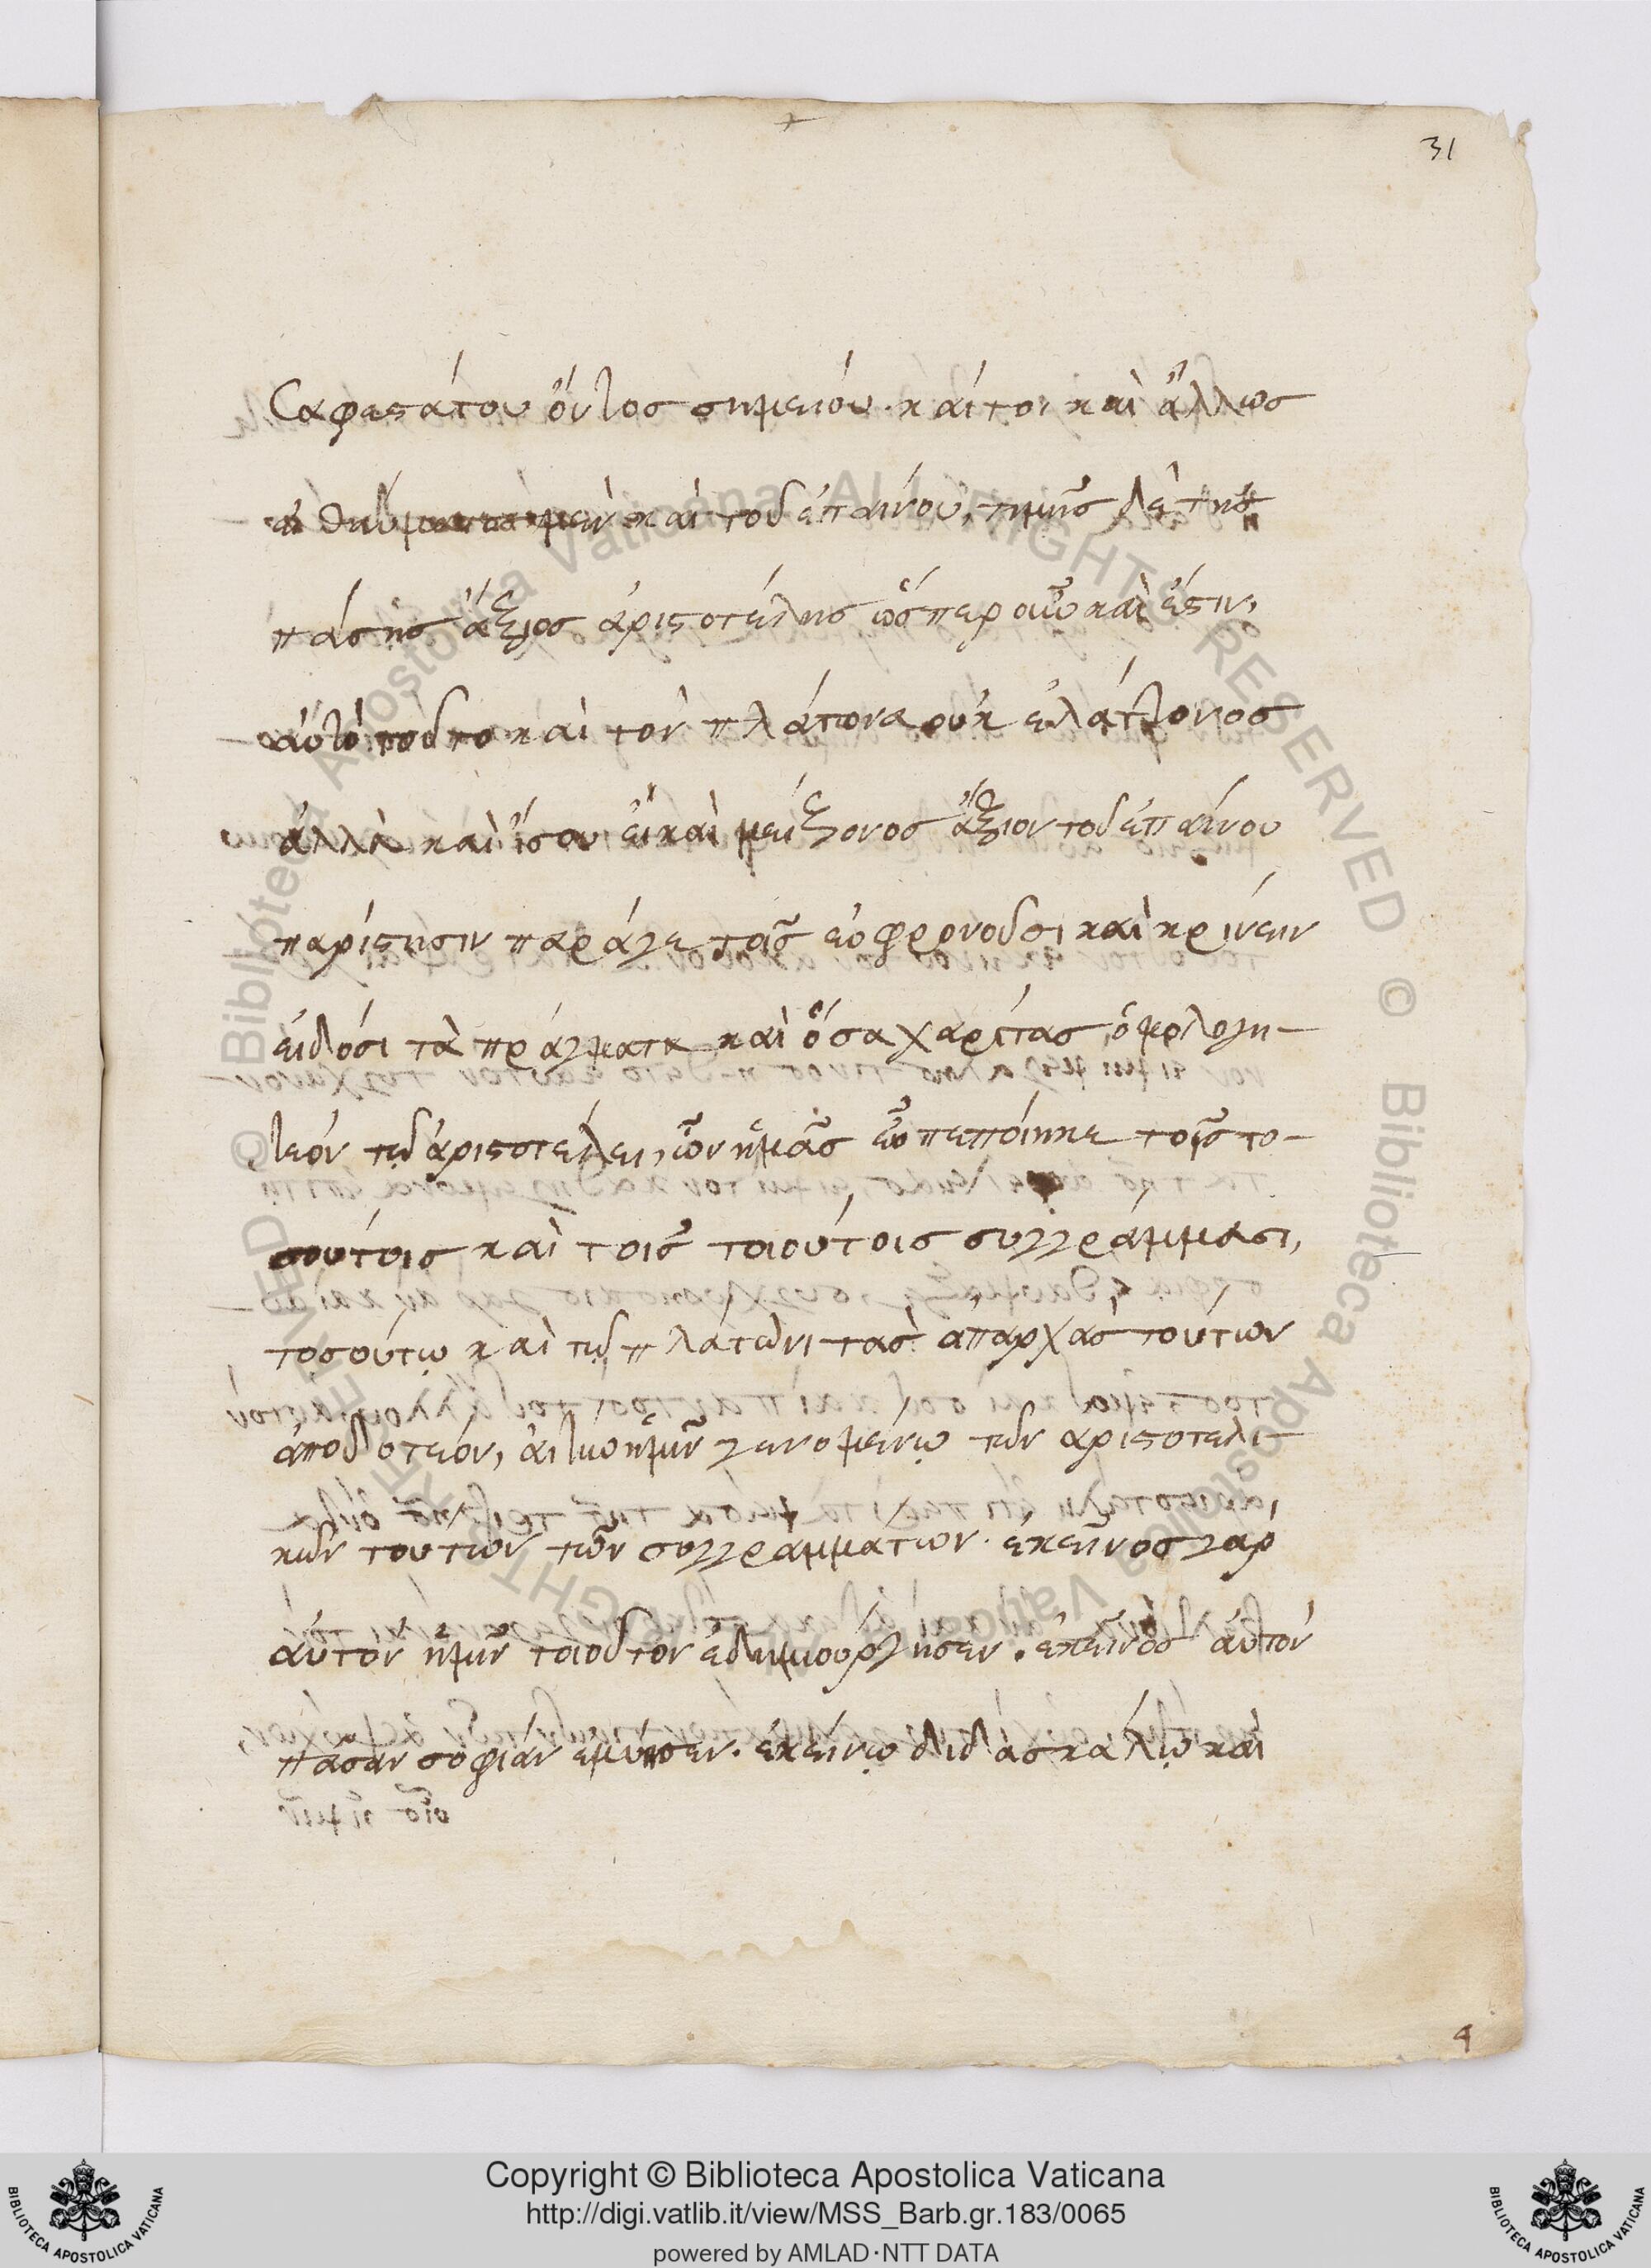 31
Σαφεστάτου ὄντος σημείου. καίτοι καὶ ἄλλως
εἰ θαύματος μὲν καὶ τοῦ ἐπαίνου, τιμῆς δὲ τῆς
πάσης ἄξιος ἀριστοτέλης ὥσπερ οὖν καὶ ἔστιν,
αὐτὸ τοῦτο καὶ τὸν πλάτωνα οὐκ ἐλάττονος
ἀλλὰ καὶ ἴσου εἰ καὶ μείζονος ἄξιον τοῦ ἐπαίνου
παρίστησιν παράγε τοῖς εὐφρονοῦσι καὶ κρίνειν
εἰδόσι τὰ πράγματα καὶ ὅσα χάριτας ὁμολογη-
τέον τῷ ἀριστοτέλει, ὧν ἡμᾶς εὖ πεποίηκε τοῖς το-
σούτοις καὶ τοῖς τοιούτοις συγγράμμασι,
τοσούτῳ καὶ τῷ πλάτωνι τὰς ἀπαρχὰς τούτων
ἀποδοτέον, αἰτίῳ ἡμῖν γενομένῳ τῶν ἀριστοτελι-
κῶν τούτων τῶν συγγραμμάτων. ἐκεῖνος γὰρ
αὐτὸν ἡμῖν τοιοῦτον ἐδημιούργησεν. ἐκεῖνος αὐτὸν
πᾶσαν σοφίαν ἐμύησεν. ἐκείνῳ διδασκάλῳ καὶ
© Biblioteca Apostolica Vaticana ALL RIGHTS RESERVED © Biblioteca Apostolica Vaticana ALL RIGHTS RESERVED
Copyright © Biblioteca Apostolica Vaticana
http://digi.vatlib.it/view/MSS_Barb.gr.183/0065
powered by AMLAD·NTT DATA
BIBLIOTECA APOSTOLICA VATICANA
BIBLIOTECA APOSTOLICA VATICANA